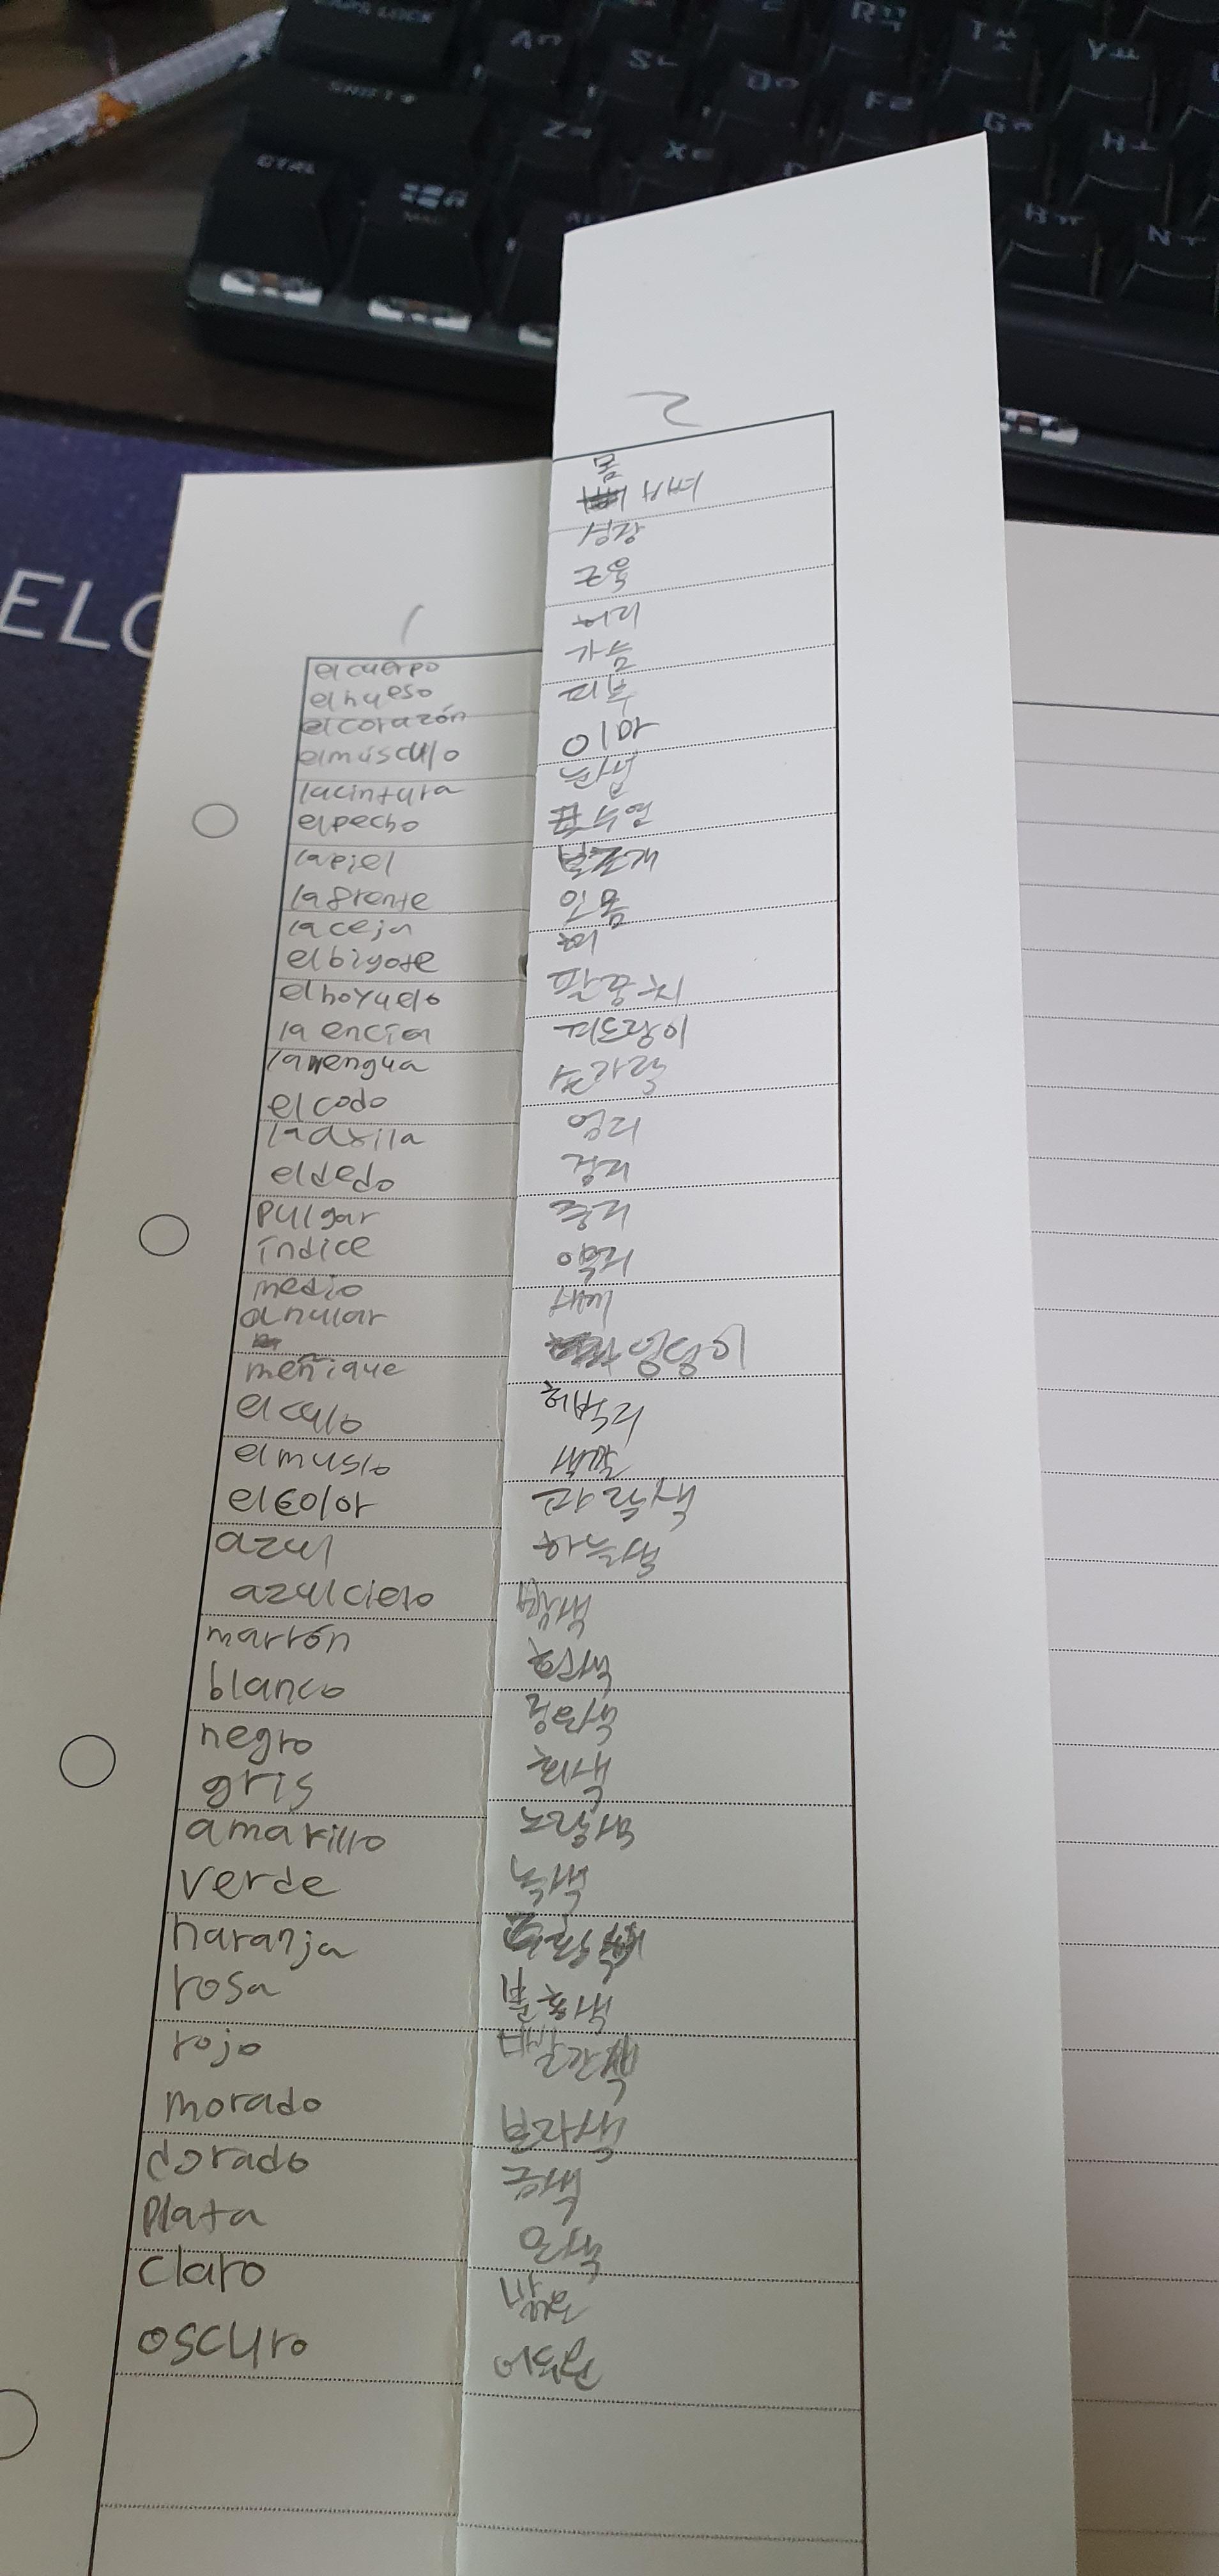 ELO
1
el cuerpo
el hueso
el corazón
el músculo
la cintura
el pecho
la piel
la frente
la ceja
el bigote
el hoyuelo
la encía
la lengua
el codo
la axila
el dedo
pulgar
índice
medio
anular
meñique
el culo
el muslo
el color
azul
azul cielo
marrón
blanco
negro
gris
amarillo
verde
naranja
rosa
rojo
morado
dorado
plata
claro
oscuro
2
몸
뼈
심장
근육
허리
가슴
피부
이마
눈썹
콧수염
보조개
잇몸
혀
팔꿈치
겨드랑이
손가락
엄지
검지
중지
약지
엉덩이
허벅지
색깔
파란색
하늘색
갈색
흰색
검정색
회색
노랑색
녹색
분홍색
빨간색
보라색
금색
은색
밝은
어두운
CAPS LOCK
SHIFT
CTRL
A ㅁ
S ㄴ
D ㅇ
F ㄹ
G ㅎ
H ㅗ
Z ㅋ
X ㅌ
R ㄱ
T ㅅ
Y ㅛ
B ㅠ
N ㅜ